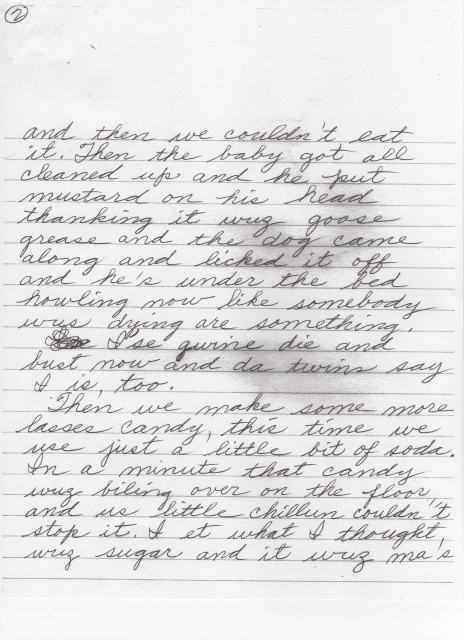 2
and then we couldn't eat
it. Then the baby got all
cleaned up and he put
mustard on his head
thanking it wuz goose
grease and the dog came
along and licked it off
and he's under the bed
howling now like somebody
wus dying are something.
I'se gwine die and
bust now and da twins say
I is, too.
Then we make some more
lasses candy, this time we
use just a little bit of soda.
In a minute that candy
wuz biling over on the floor,
and us little chillun couldn't
stop it. I et what I thought,
wuz sugar and it wuz ma's